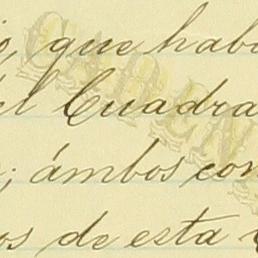 que hab
el Cuadra
; ámbos con
os de esta